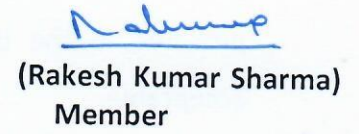 (Rakesh Kumar Sharma)
Member